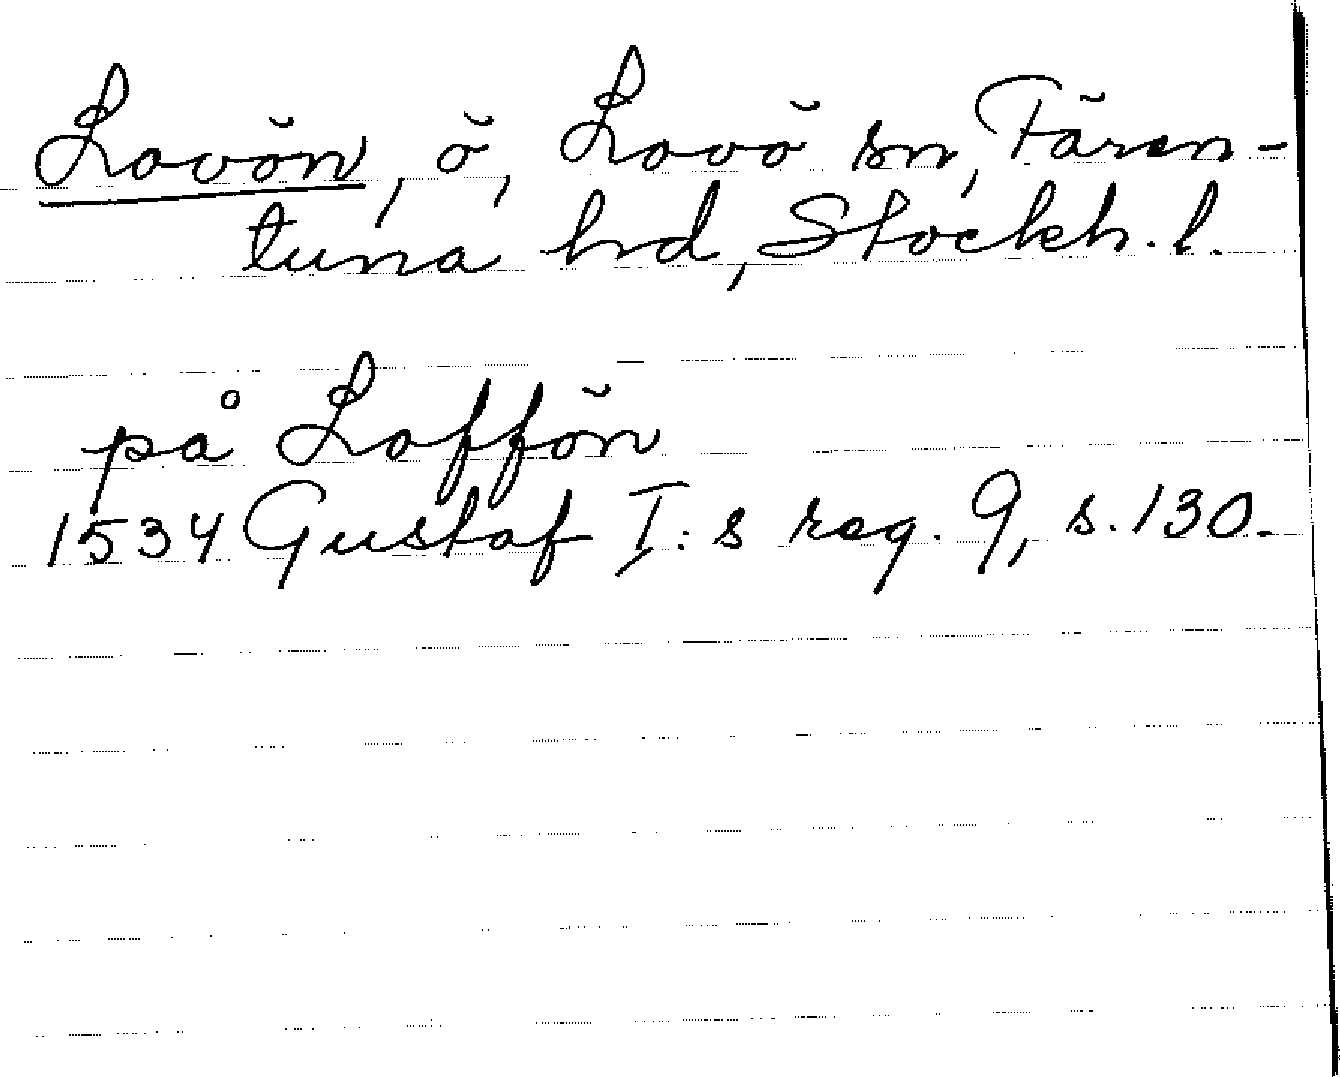 Lovön, ö, Lovö sn, Fären-
tuna hd, Stockh. l.
på Loffön
1534 Gustaf I:s reg. 9, s. 130.